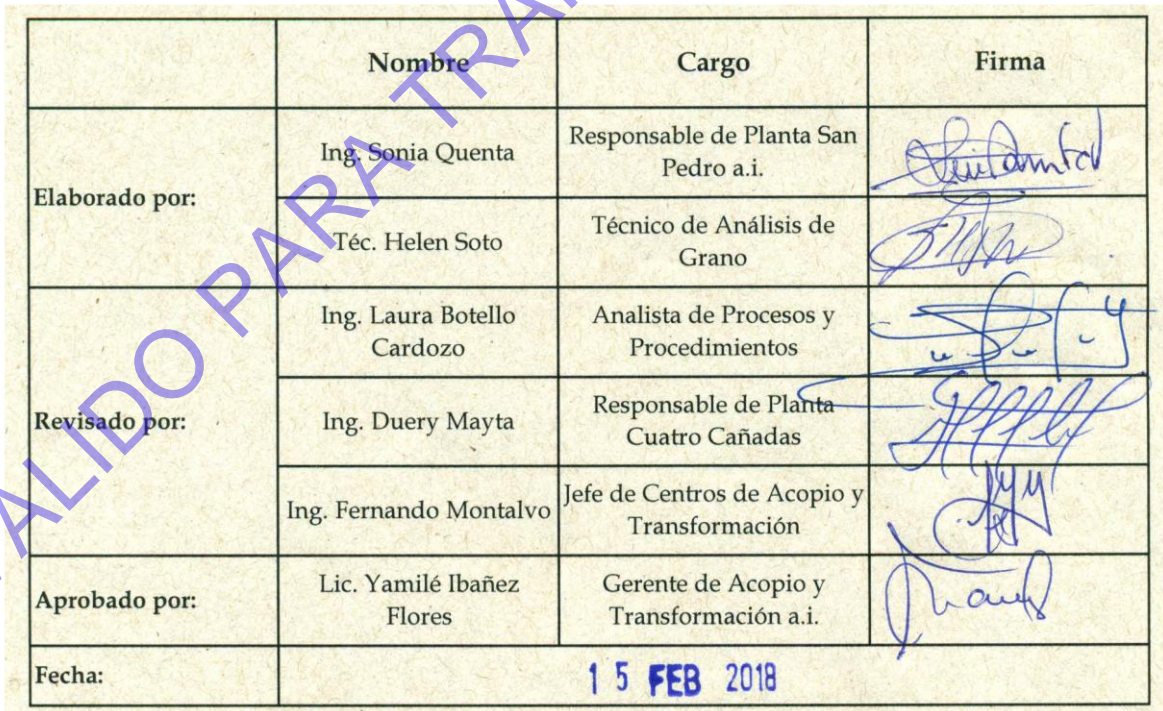 Nombre Cargo Firma
Elaborado por:
Ing. Sonia Quenta
Responsable de Planta San
Pedro a.i.
Téc. Helen Soto
Técnico de Análisis de
Grano
Revisado por:
Ing. Laura Botello
Cardozo
Analista de Procesos y
Procedimientos
Ing. Duery Mayta
Responsable de Planta
Cuatro Cañadas
Ing. Fernando Montalvo
Jefe de Centros de Acopio y
Transformación
Aprobado por:
Lic. Yamilé Ibañez
Flores
Gerente de Acopio y
Transformación a.i.
Fecha:
15 FEB 2018
ALIDO PARA TRA